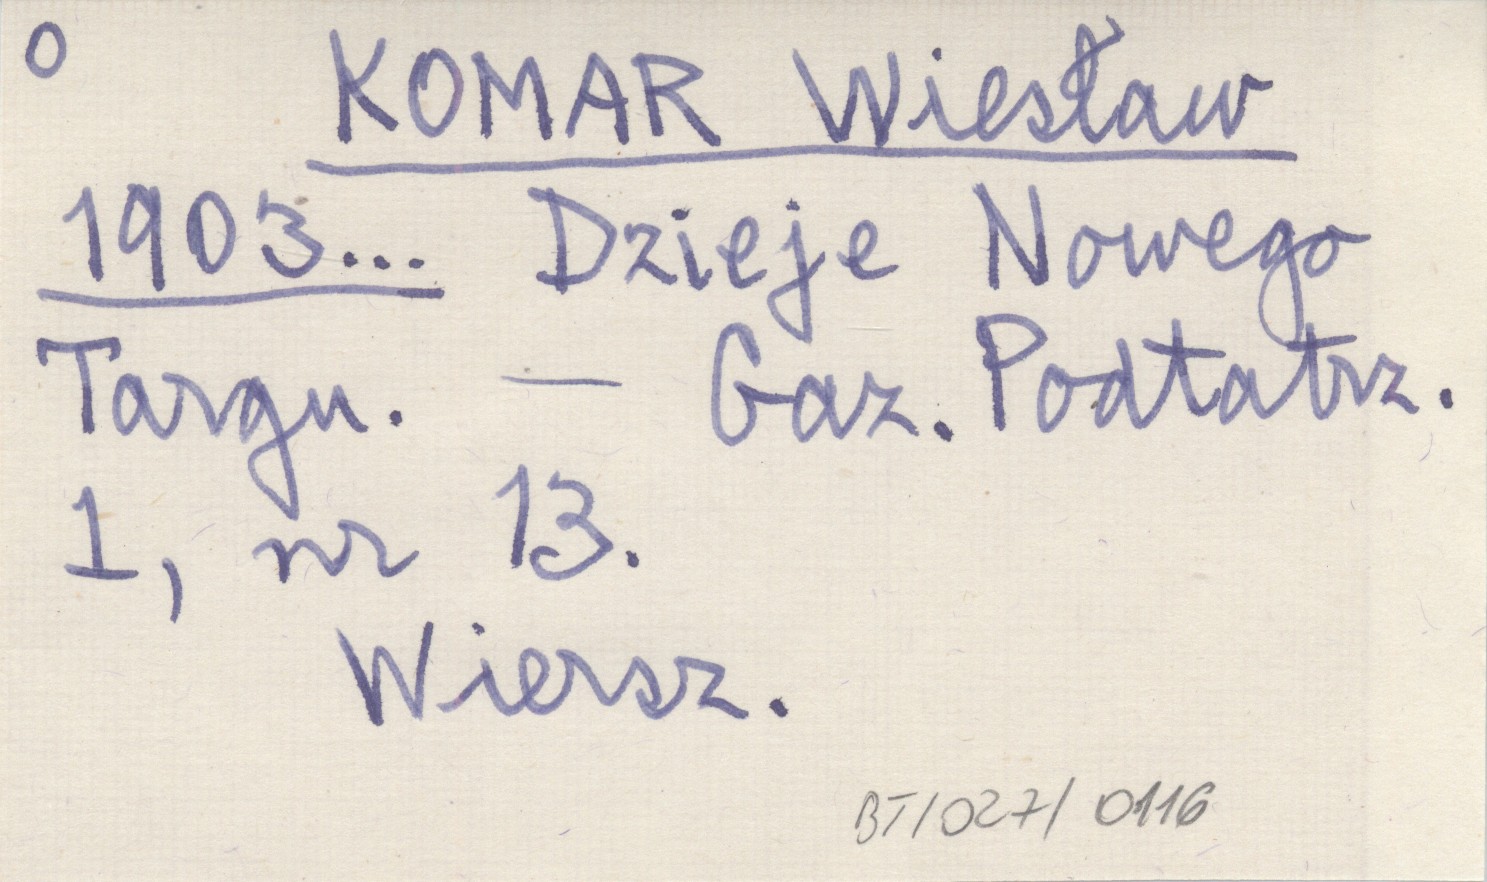 O
KOMAR Wiesław
1903... Dzieje Nowego
Targu. — Gaz. Podtatrz.
1, nr 13.
Wiersz.
BT/027/0116